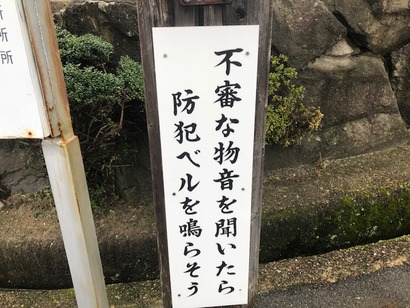 不審な物音を聞いたら
防犯ベルを鳴らそう
所
所